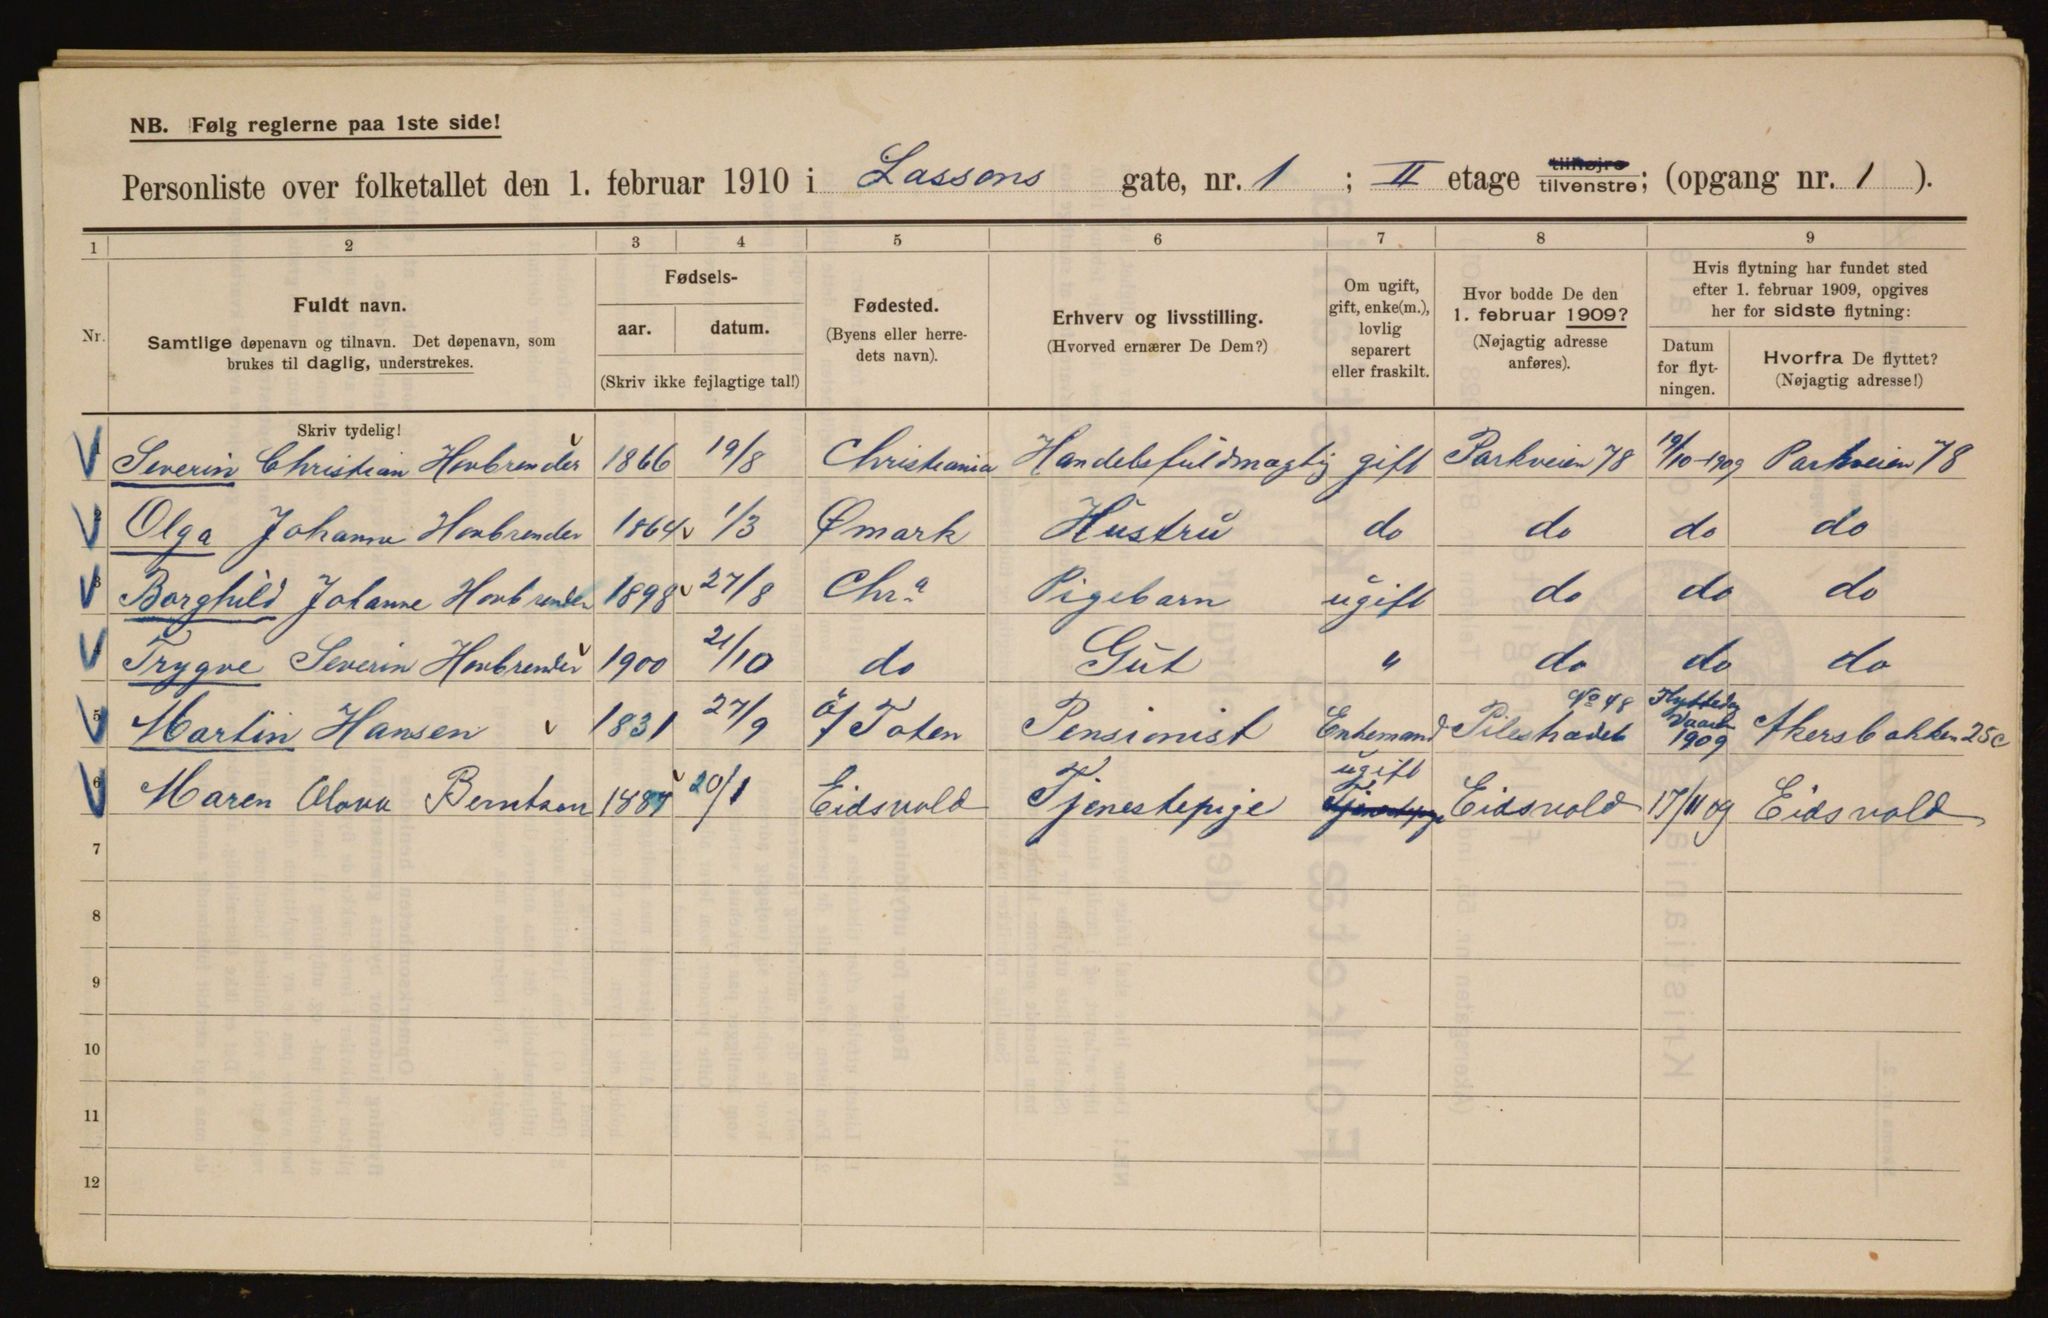 NB. Følg reglerne paa 1ste side!
Personliste over folketallet den 1. februar 1910 i Lassons gate, nr. 1 ; II etage tilhøjre tilvenstre; (opgang nr. 1 ).
1 2 3 4 5 6 7 8 9
Nr.
Fuldt navn.
Samtlige døpenavn og tilnavn. Det døpenavn, som
brukes til daglig, understrekes.
Fødsels-
aar. datum.
(Skriv ikke fejlagtige tal!)
Fødested.
(Byens eller herre-
dets navn).
Erhverv og livsstilling.
(Hvorved ernærer De Dem?)
Om ugift,
gift, enke(m.),
lovlig
separert
eller fraskilt.
Hvor bodde De den
1. februar 1909?
(Nøjagtig adresse
anføres).
Hvis flytning har fundet sted
efter 1. februar 1909, opgives
her for sidste flytning:
Datum
for flyt-
ningen.
Hvorfra De flyttet?
(Nøjagtig adresse!)
Skriv tydelig!
Severin Christian Hovbrender 1866 19/8 Christiania Handelsfuldmægtig gift Parkveien 78 19/10-1909 Parkveien 78
2 Olga Johanne Hovbrender 1864 1/3 Ømark Hustru do do do do
3 Borghild Johanne Hovbrender 1898 27/8 Chr.a Pigebarn ugift do do do
Trygve Severin Hovbrender 1900 21/10 do Gut " do do do
5 Martin Hansen 1831 27/9 Ø/Toten Pensionist Enkemand Pilestrædet No 48 Flyttedag Vaaren 1909 Akersbakken 25c
6 Maren Berntsen 20/1 Eidsvold Tjenestepige ugift Eidsvold 17/11 09 Eidsvold
7
8
9
10
11
12